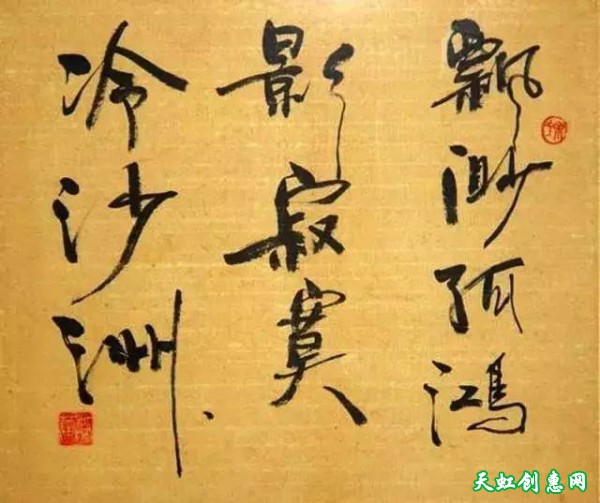 飄渺孤鴻
影寂寞
冷沙洲
天虹创惠网